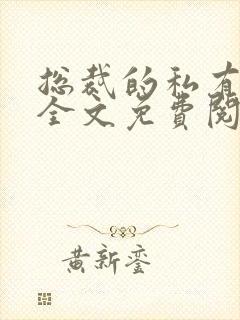 总裁的私有
全文免费阅
黄新銮